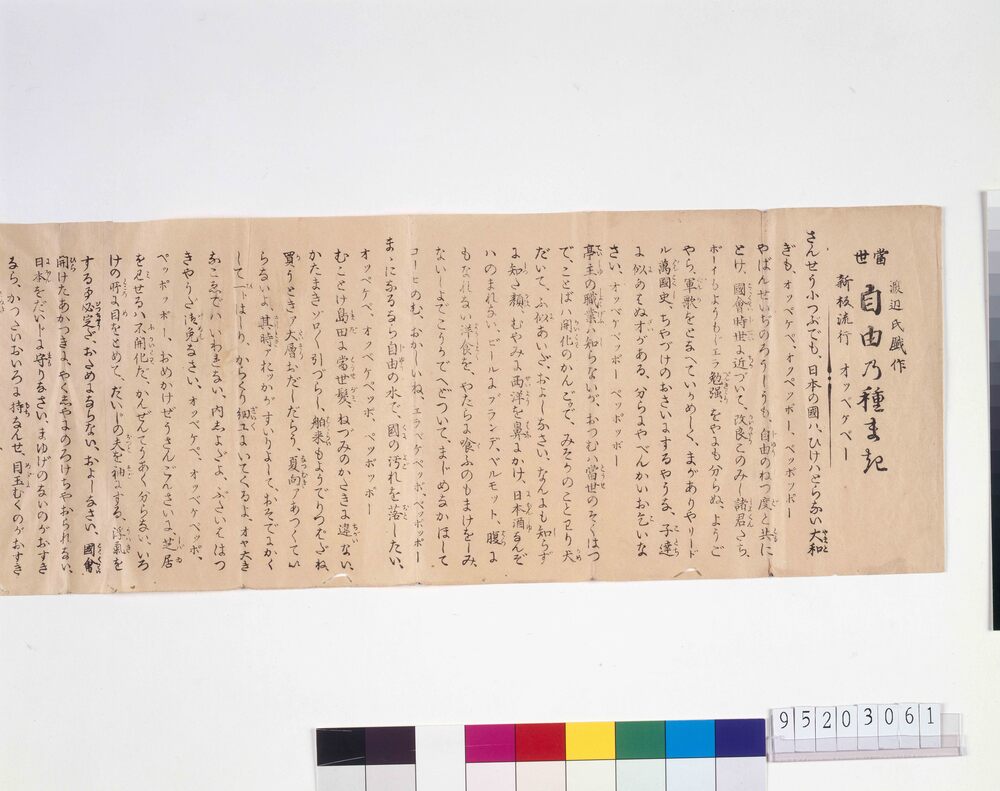 渡辺氏戯作
當世 自由乃種ま記
新板流行 オッペケペー
さんせう小つぶでも、日本の國ハ、ひけハとらない大和
ぎも、オッペケペ、オッペケペッポー、ペッポッポー
やばんせいぢのろうしうも、自由のねつ度と共に
とけ、國會時世に近づいて、改良とのみ諸君さたち、
ボーイもよりもドエラ勉強をやまも分らぬ、ようご
やら、軍歌をとなへていかめしく、まがありやリード
ル萬國史、ちやづけのおさいにするやうな、子達
に似あはぬ才がある、分らにやべんかいお乞いな
さい、オッペケペッポー ペッポッポー
亭主の職業ハ知らないが、おつむハ當世のそくはつ
で、ことばハ開化のかんごで、みそかのことわり犬
だいて、ふ似あいだ、およしなさい、なんにも知らず
に知た顔、むやみに西洋を鼻にかけ、日本酒なんぞ
ハのまれない、ビールにブランデ、ベルモット、腹に
もなれない洋食を、やたらに喰ふのもまけをしみ、
ないしよでこうかでへどついて、まじめなかほして
コーヒのむ、おかしいね、エラペケペッポ、ペッポッポー
まゝになるなら自由の水で、國の汚れを落したい、
オッペケペ、オッペケペッポ、ペッポッポー
むことけ島田に當世髪、ねづみのかたきに違ない、
かたまきゾロ〱引づらし、舶来もようでりつぱだね、
買うときア大層おだしだらう、夏向アあつくてい
らないよ、其時ア九ッかがすいりよして、おそでにかく
して一トはしり、からくり細工にいてくるよ、オヤ大き
なこゑでハいわれない、内しよだよ、ぶさいくはつ
きやうだ御免なさい、オッペケペ、オッペケペッポ、
ペッポッポー、おめかけぜうさんごんさいに芝居
を见せるハ不開化だ、かんぜんてうあく分らない、いろ
けの所に目をとめて、だいじの夫を袖にする、浮氣を
する事必定だ、おためにならない、およしなさい、國會
開けたあかつきに、やくしやにのろけちやおられない、
日本をだいじに守りなさい、まゆげのないのがおすき
なら、かつたいおいろに持なんせ、目玉むくのがおすき
95203061